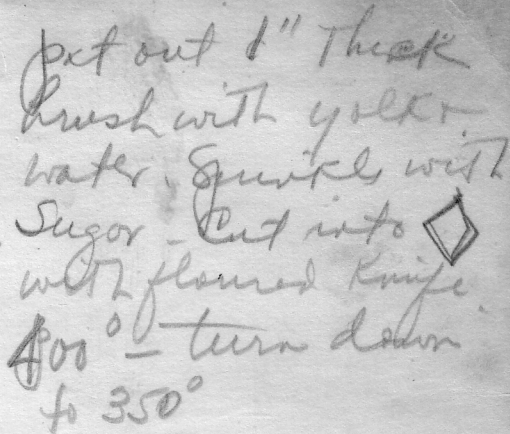 pat out 1" Thick
brush with yolk +
water. Sprinkle with
Sugar - Cut into ◇
with floured knife.
400° - turn down
to 350°